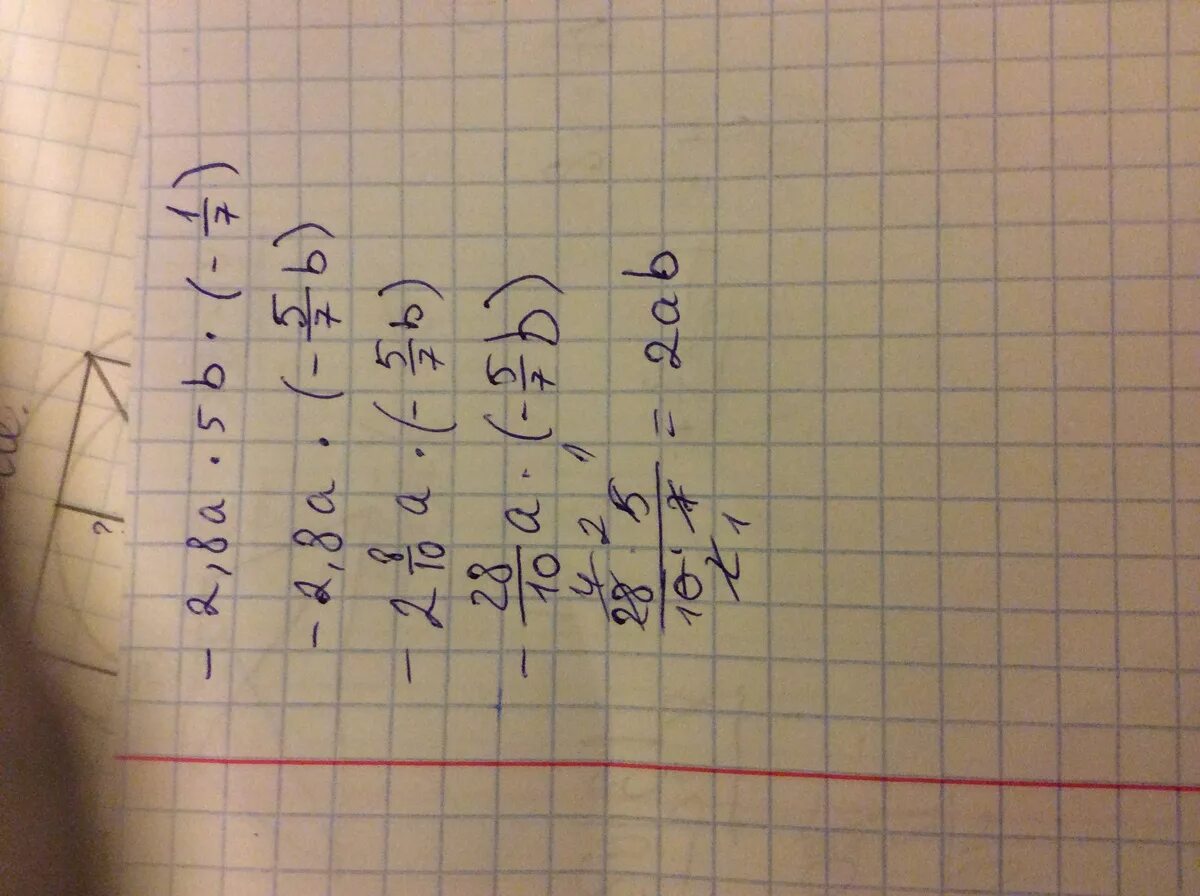 - 2,8a · 5b · (- 1/7)
- 2,8a · (- 5/7 b)
- 2 8/10 a · (- 5/7 b)
- 28/10 a · (- 5/7 b)
28 · 5 / 10 · 7 = 2ab
4 2 1
1 2 1
?